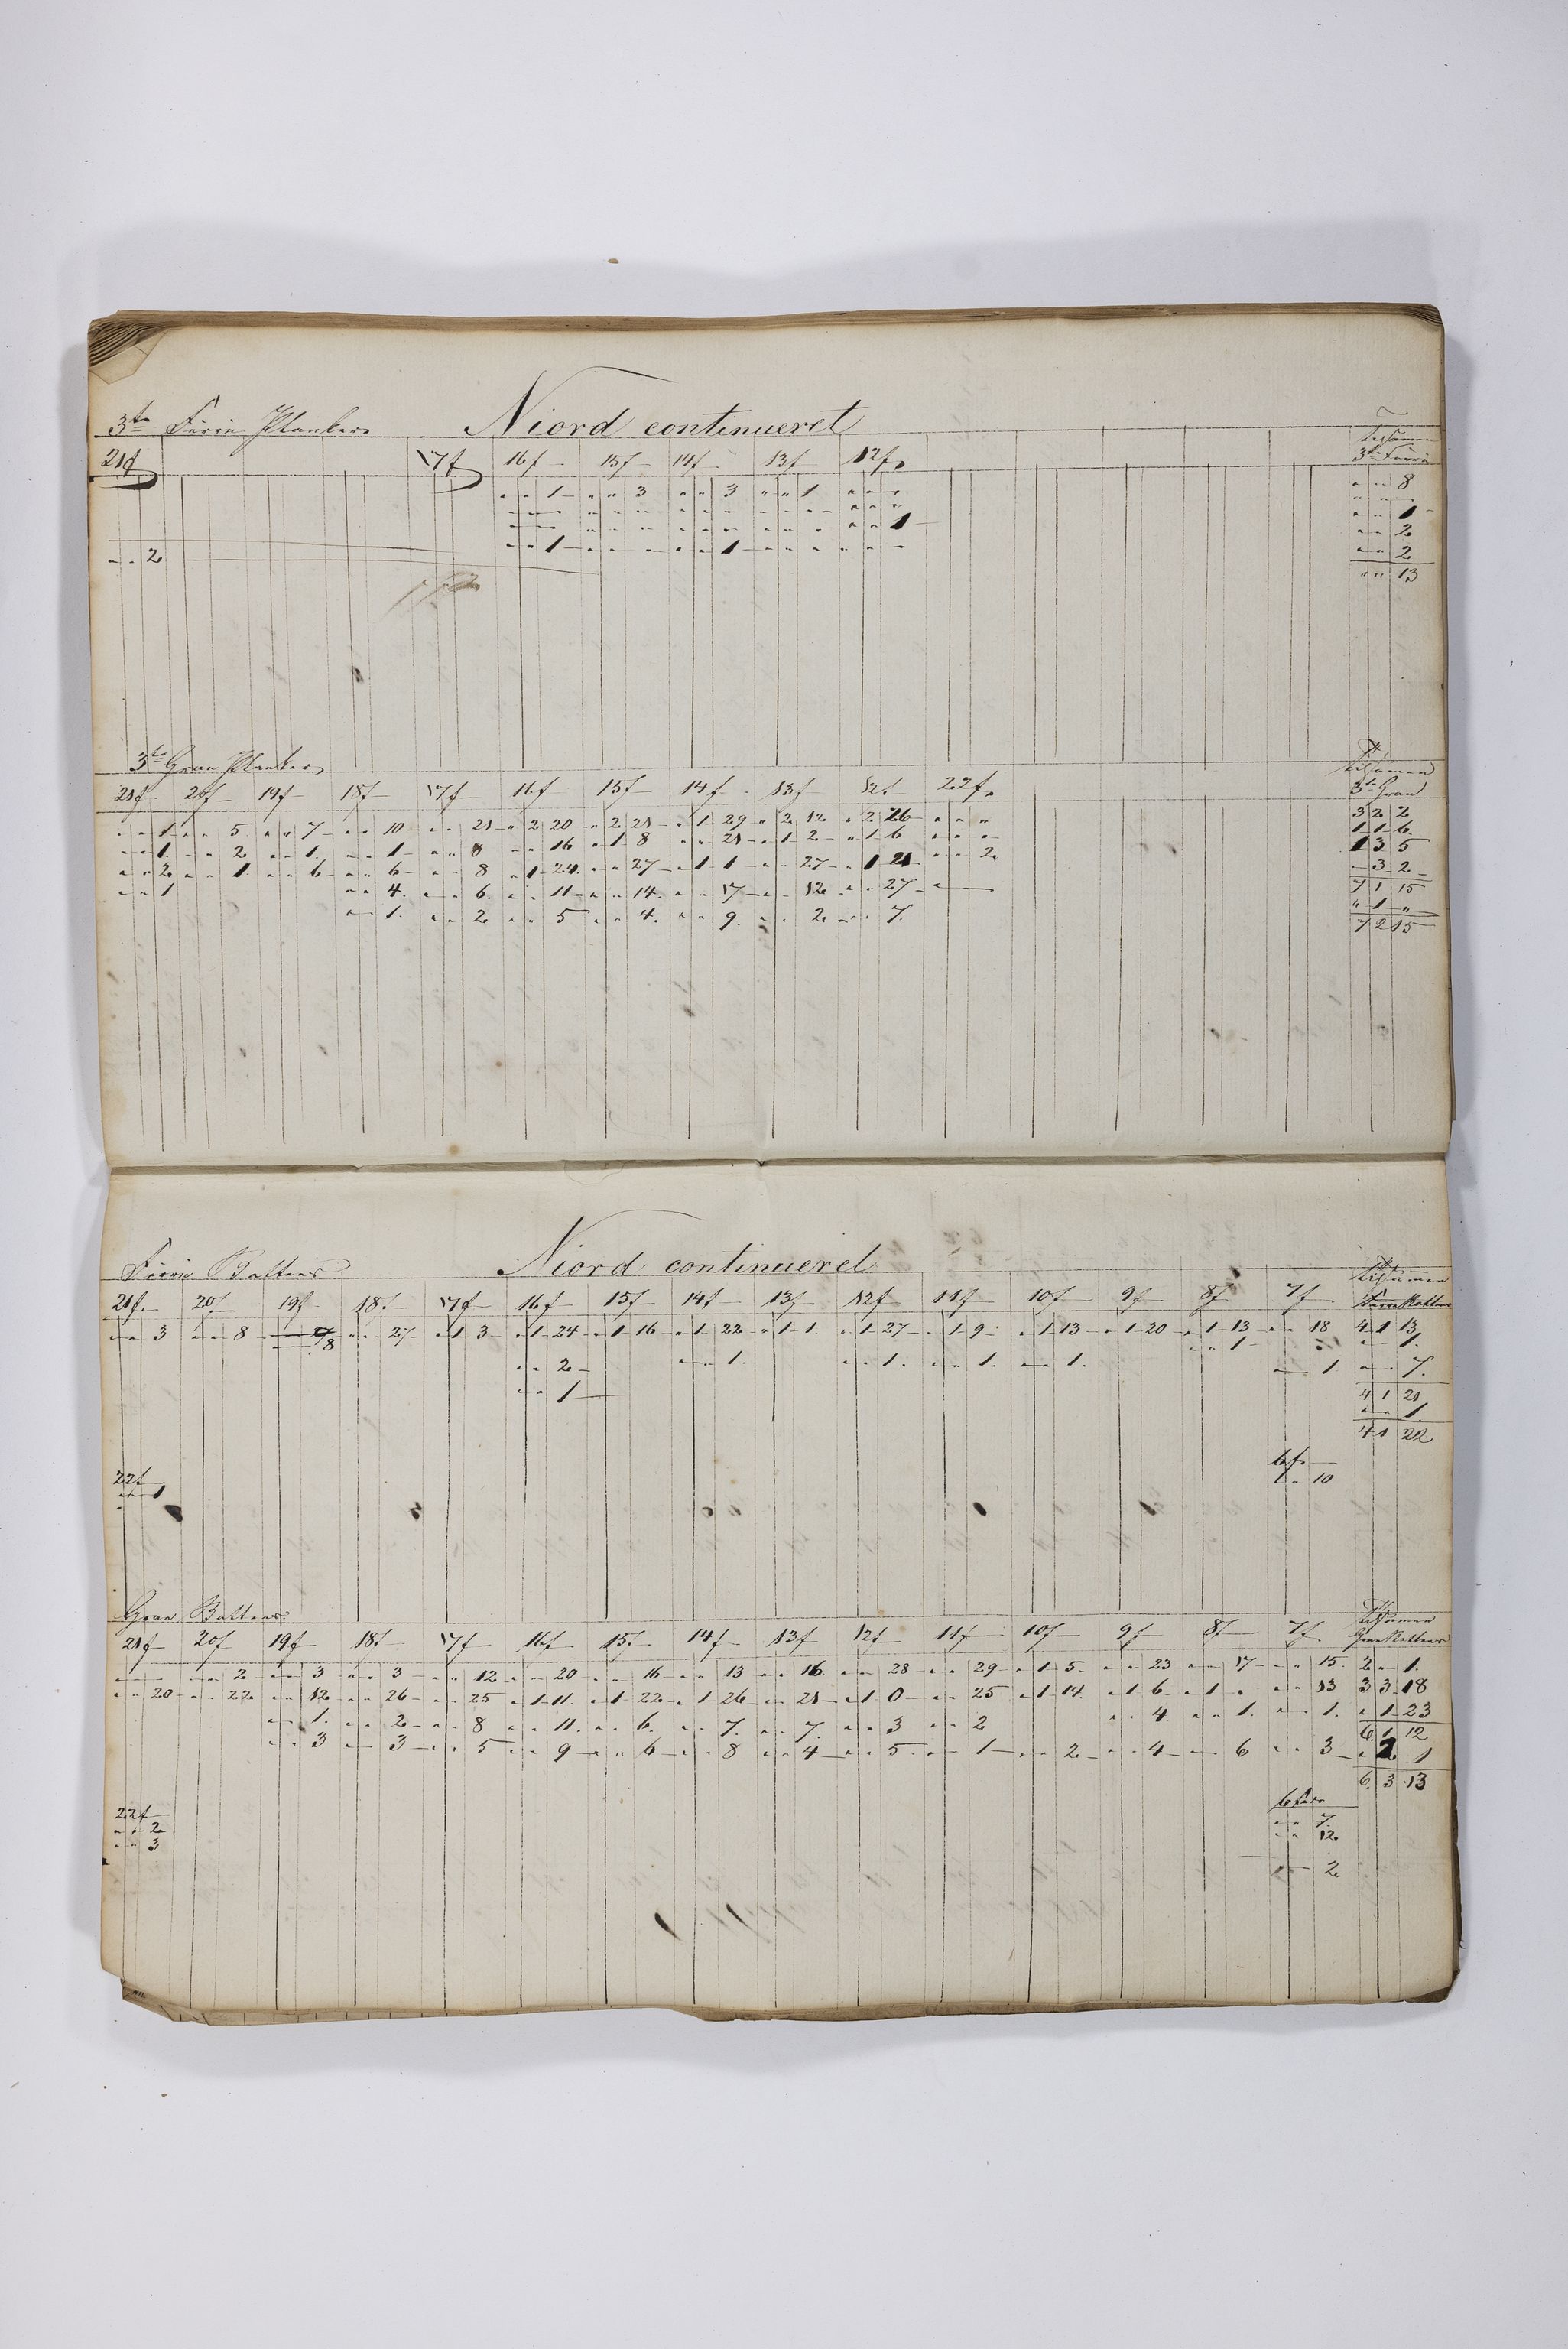 3te Furru Planker Niord continueret Tilsammen
21f 17f 16f 15f 14f 13f 12f 3te Furru
" " 1 " " 3 " " 3 " " 1 " " " " " 8
" " " " " " " " " " " " " " " " " "
" " " " " " " " " " " " " " 1 " " 1
" " 2
" " 2 " " 1 " " " " " 1 " " " " " " " " 2
" " 13
3te Gran Planker Tilsammen
21f 20f 19f 18f 17f 16f 15f 14f 13f 12f 22f 3te Gran
" " 1 " " 5 " " 7 " " 10 " " 21 " 2 20 " 2 21 " 1 29 " 2 12 " 2 26 " " " 3 2 2
" " 1 " " 2 " " 1 " " 1 " " 8 " " 16 " 1 8 " " 21 " 1 2 " 1 6 " " " 1 1 6
" " 2 " " 1 " " 6 " " 6 " " 8 " 1 24 " " 27 " 1 1 " " 27 " 1 21 " " 2 1 3 5
" " 1 " " 4 " " 6 " " 11 " " 14 " " 17 " " 12 " " 27 " " 3 2
7 1 15
" " 1 " " 2 " " 5 " " 4 " " 9 " " 2 " " 7 " 1 "
7 2 15
Furru Battens Niord continueret Tilsammen
21f 20f 19f 18f 17f 16f 15f 14f 13f 12f 11f 10f 9f 8f 7f Furru Battens
" " 3 " " 8 " " 8 " " 27 " 1 3 " 1 24 " 1 16 " 1 22 " 1 1 " 1 27 " 1 9 " 1 13 " 1 20 " 1 13 " " 18 4 1 13
" " 1 " " 1
" " 2 " " 1 " " 1 " " 1 " " 1 " " 1 " " 7
" " 1 4 1 21
" " 1
4 1 22
22f 6f
" " 1 " " 10
Gran Battens Tilsammen
21f 20f 19f 18f 17f 16f 15f 14f 13f 12f 11f 10f 9f 8f 7f Gran Battens
" " " " " 2 " " 3 " " 3 " " 12 " " 20 " " 16 " " 13 " " 16 " " 28 " " 29 " 1 5 " " 23 " " 17 " " 15 2 " 1
" " 20 " " 22 " " 12 " " 26 " " 25 " 1 11 " 1 22 " 1 26 " " 21 " 1 0 " " 25 " 1 14 " 1 6 " 1 " " " 13 3 3 18
" " 1 " " 2 " " 8 " " 11 " " 6 " " 7 " " 7 " " 3 " " 2 " " 4 " " 1 " " 1 " 1 23
6 1 12
" " 3 " " 3 " " 5 " " 9 " " 6 " " 8 " " 4 " " 5 " " 1 " " 2 " " 4 " " 6 " " 3 " 2 1
6 3 13
22f
" " 2 " " 7
" " 3 " " 12
" " 2